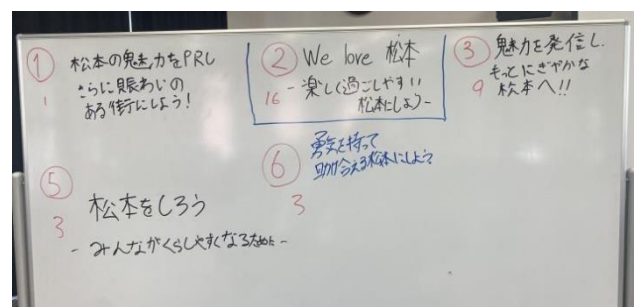 ① 松本の魅力をPRし
さらに賑わいの
ある街にしよう!
1
② We love 松本
- 楽しく過ごしやすい
松本にしよう-
16
③ 魅力を発信し、
もっとにぎやかな
松本へ!!
9
⑤
松本をしろう
- みんながくらしやすくなるために -
3
⑥ 勇気を持って
助け合える松本にしよう
3